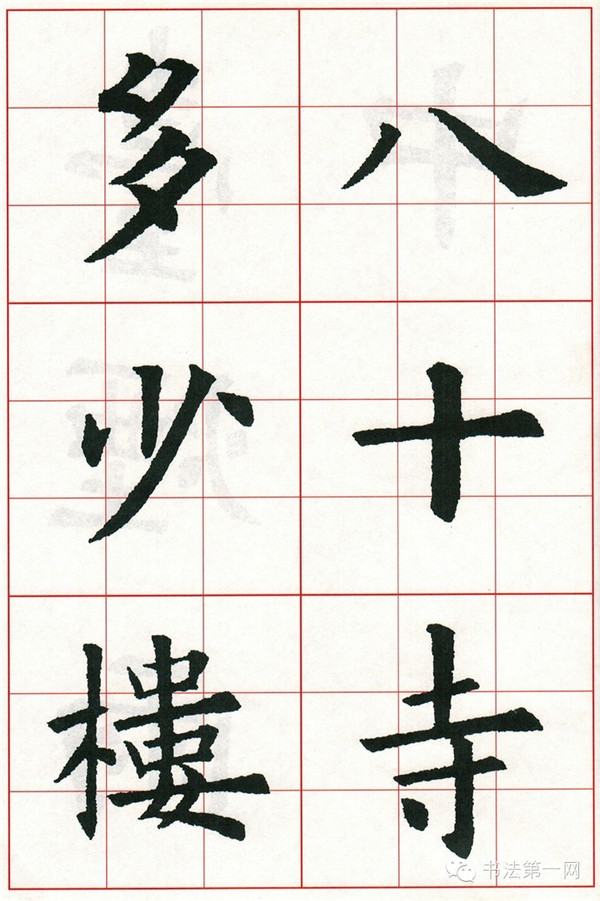 八十寺
多少樓
书法第一网